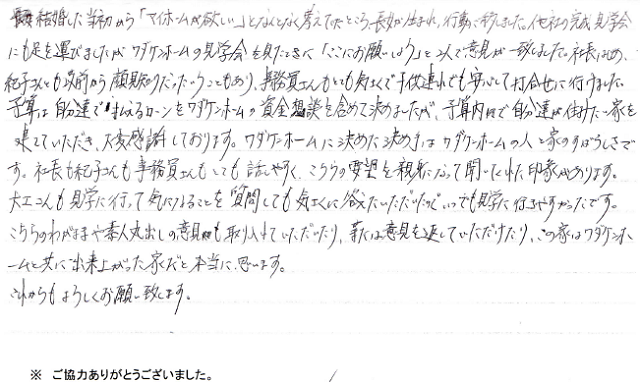 結婚した当初から「マイホームが欲しい」となんとなく考えてたところ、長女が生まれ、行動に移しました。他社の完成見学会
にも足を運びましたがワダケンホームの見学会を見たときに「ここにお願いしよう」と2人で意見が一致しました。社長はじめ、
紀子さんとも以前から顔見知りだったということもあり、事務員さんもとても気さくで子供連れでも安心して打合せに行けました。
予算は自分達で払えるローンをワダケンホームの資金相談を含めて決めましたが、予算内で自分達が住みたい家を
建てていただき、大変感謝しております。ワダケンホームに決めた決め手はワダケンホームの人と家のすばらしさで
す。社長も紀子さんも事務員さんもとても話しやすく、こちらの要望を親身になって聞いてくれた印象があります。
大工さんも見学に行って気になることを質問しても気さくに答えていただいたのでいつでも見学に行きやすかったです。
こちらのわがままや素人丸出しの意見も取り入れていただいたり、または意見を返していただけたり、この家はワダケンホ
ームと共に出来上がった家だと本当に思います。
これからもよろしくお願い致します。
※ ご協力ありがとうございました。